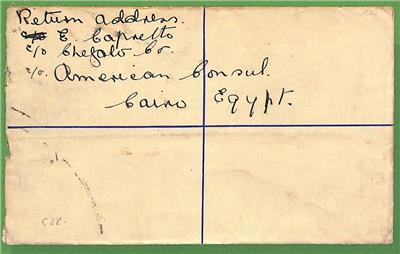 Return address.
c/o E Capretto
c/o Chegalo Co.
c/o. American Consul.
Cairo Egypt.
C28.